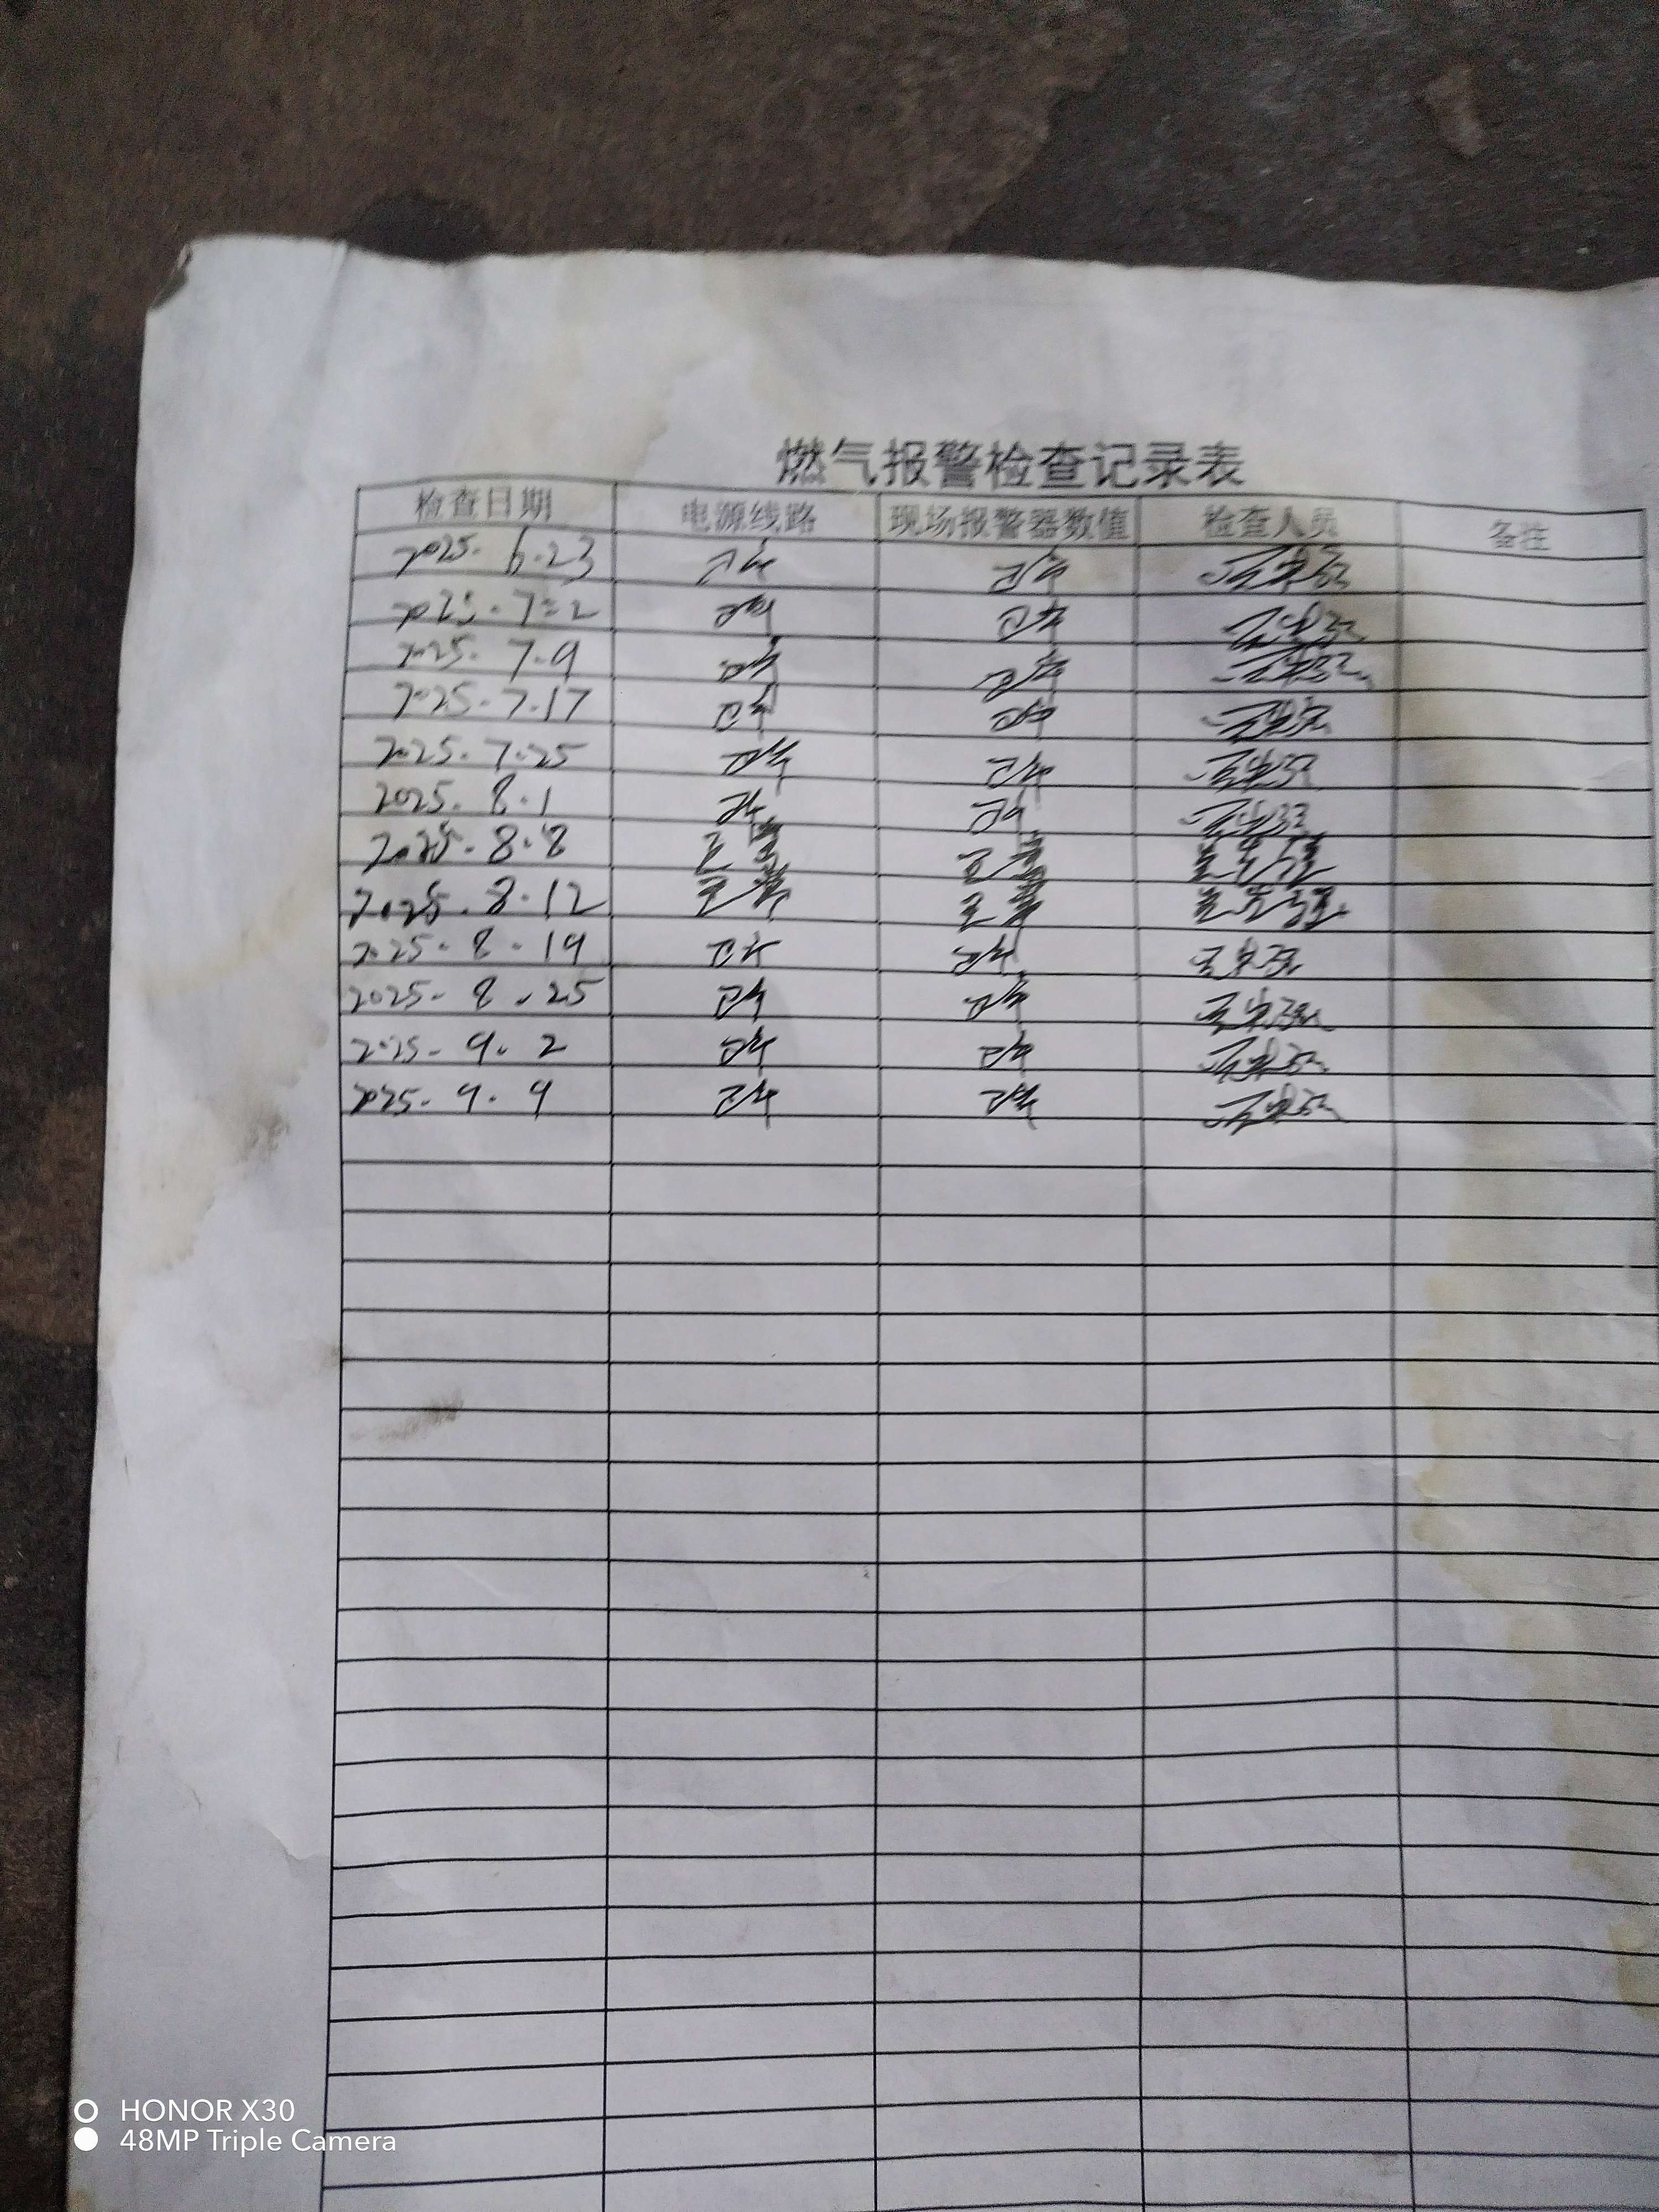 燃气报警检查记录表
检查日期 电源线路 现场报警器数值 检查人员 备注
2025. 6.23 正常 正常
2025. 7.2 正常 正常
2025. 7.9 正常 正常
2025. 7.17 正常 正常
2025. 7.25 正常 正常
2025. 8.1 正常 正常
2025. 8.8 正常 正常
2025. 8.12 正常 正常
2025. 8.19 正常 正常
2025. 8.25 正常 正常
2025. 9.2 正常 正常
2025. 9.9 正常 正常
HONOR X30
48MP Triple Camera